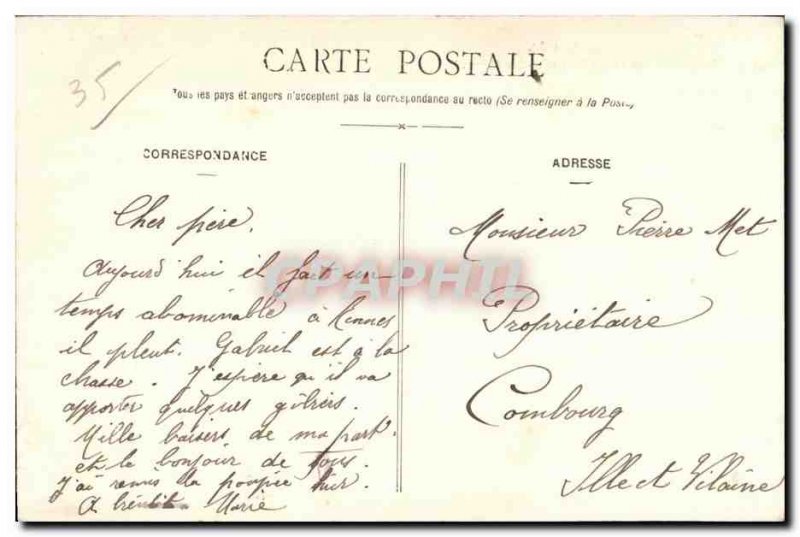 35/
CARTE POSTALE
Tous les pays étrangers n'acceptent pas la correspondance au recto (Se renseigner à la Poste)
CORRESPONDANCE
ADRESSE
Cher père,
Aujourd'hui il fait un
temps abominable à Rennes
il pleut. Gabriel est à la
chasse. J'espère qu'il va
apporter quelques gibiers.
Mille baisers de ma part.
et le bonjour de Tous.
J'ai remis la poupée hier.
A bientôt Marie
Monsieur Pierre Met
Propriétaire
Combourg
Ille et Vilaine
CPAPHIL